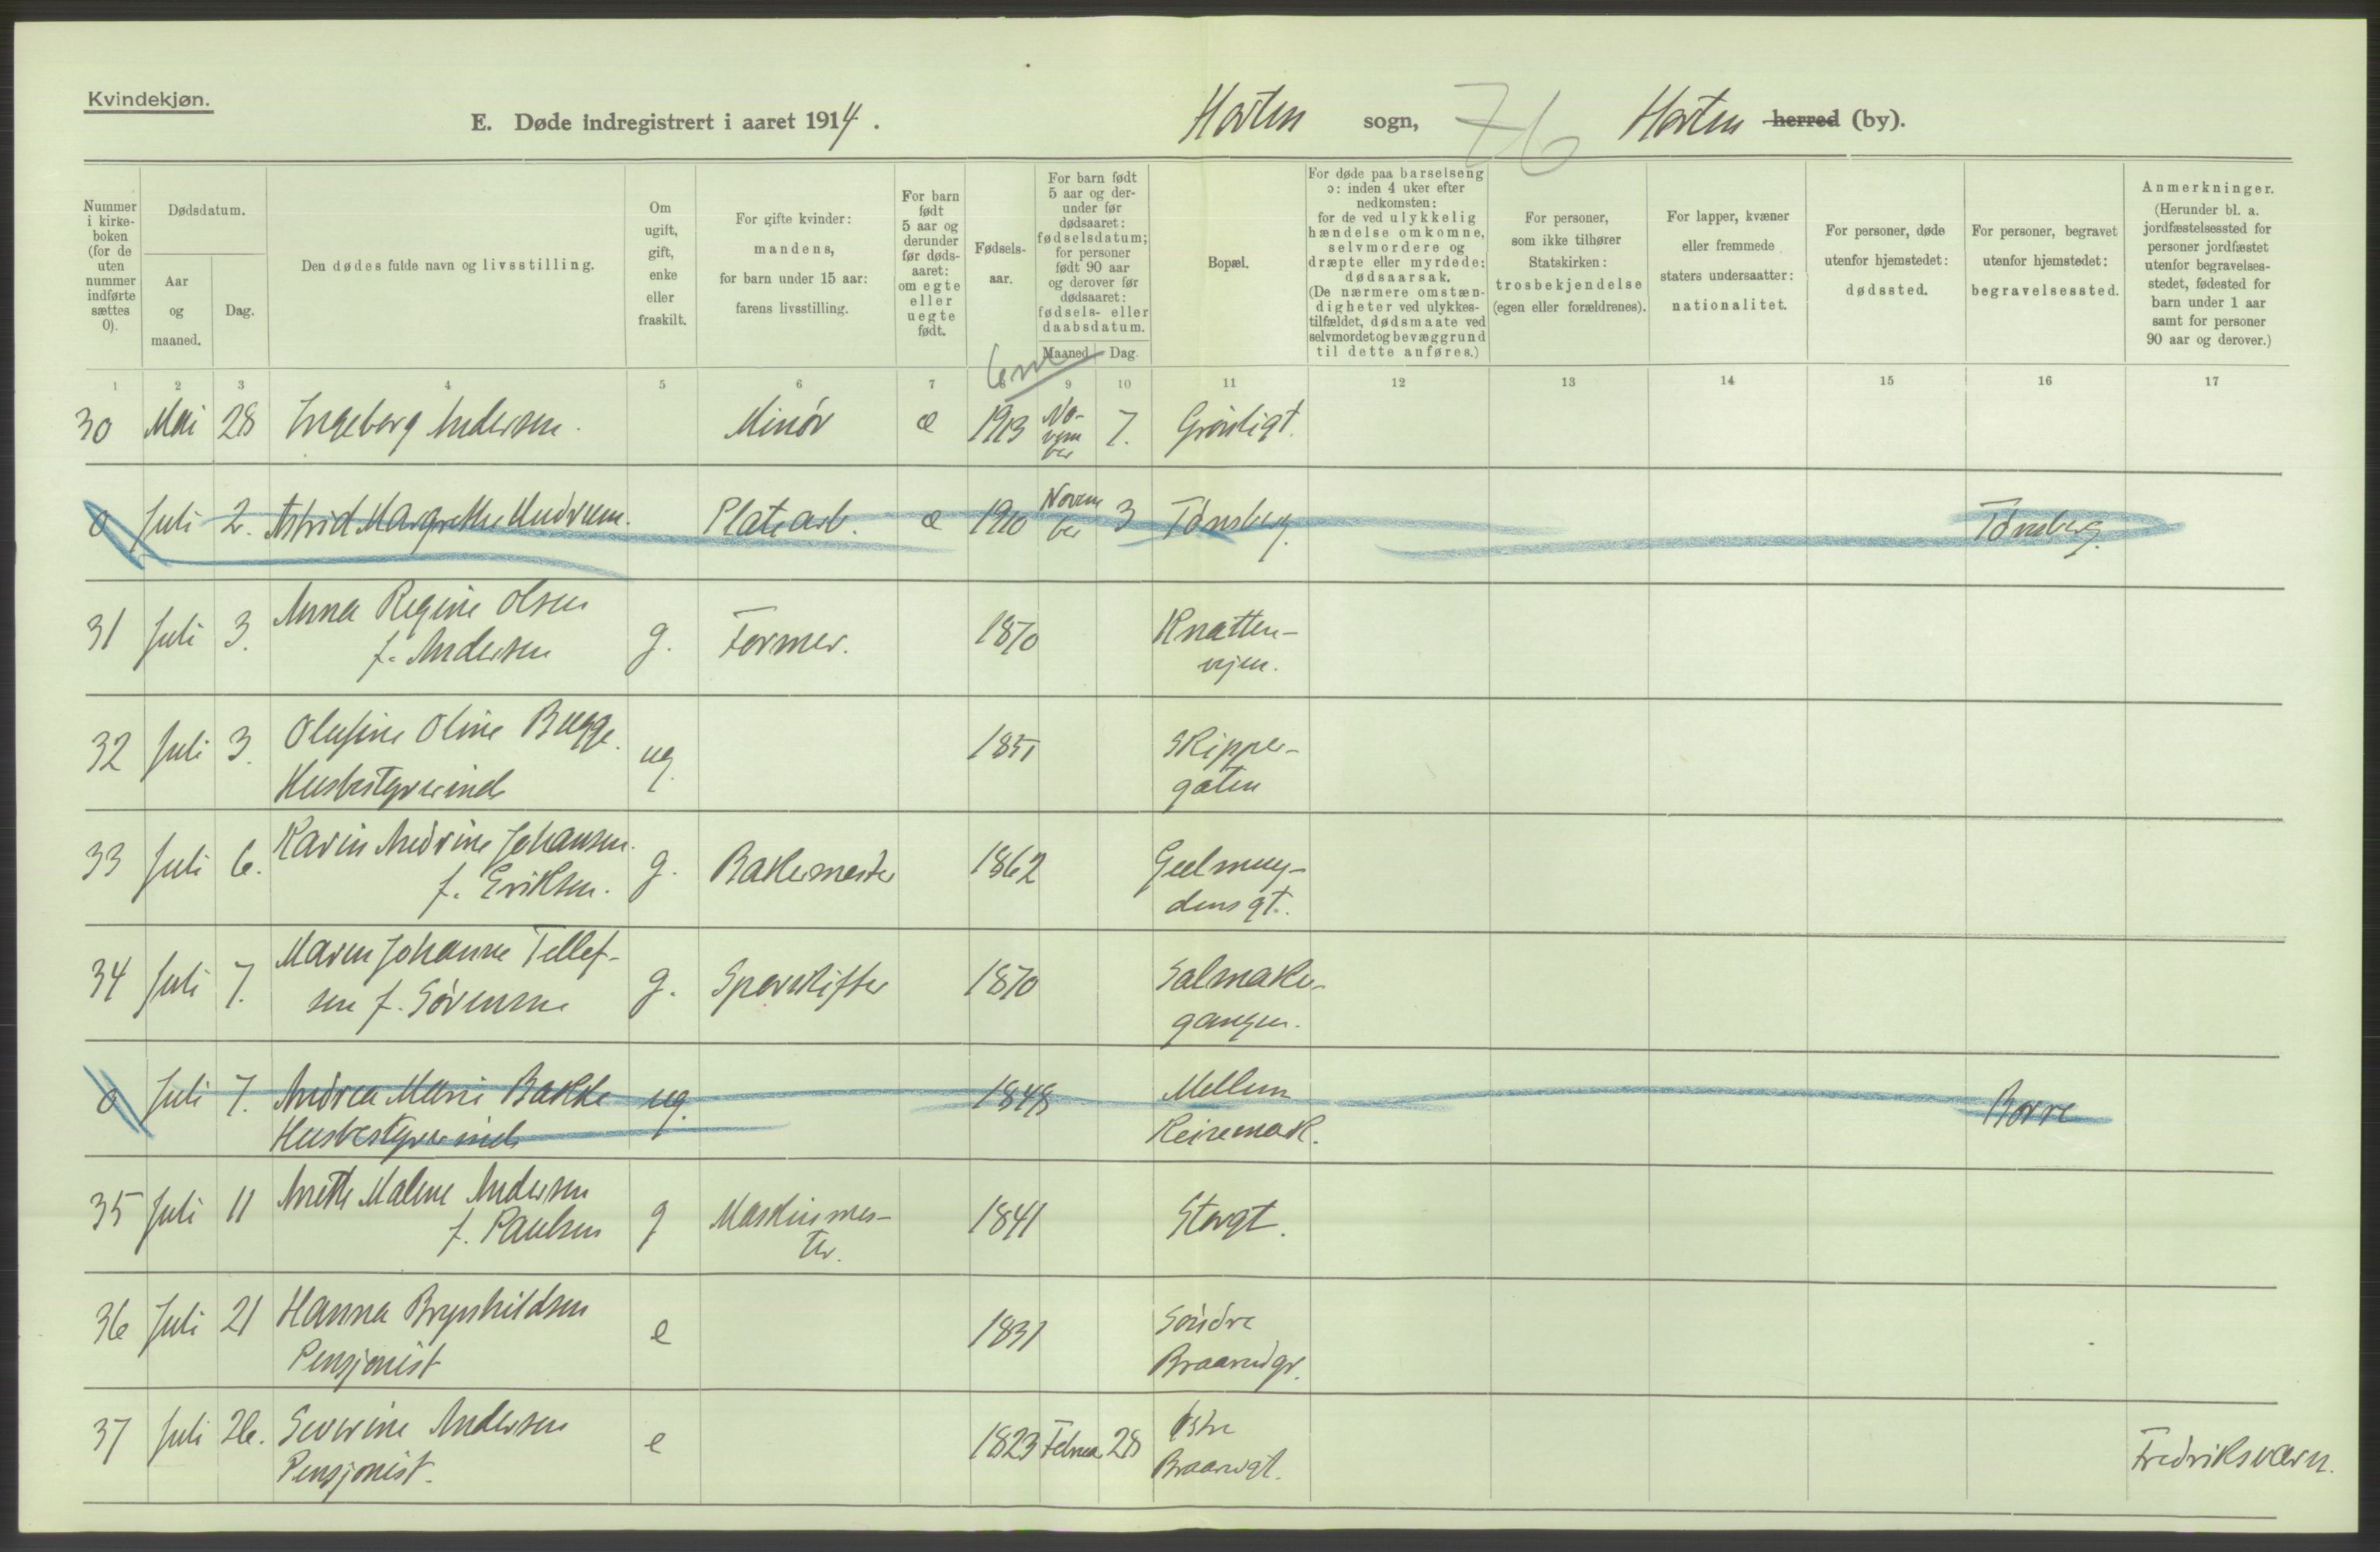 Kvindekjøn.
E. Døde indregistrert i aaret 1914.
Horten sogn, 76 Horten herred (by).
Nummer i kirke-boken (for de uten nummer indførte sættes 0).
Dødsdatum.
Aar og maaned.
Dag.
Den dødes fulde navn og livsstilling.
Om ugift, gift, enke eller fraskilt.
For gifte kvinder: mandens, for barn under 15 aar: farens livsstilling.
For barn født 5 aar og derunder før døds-aaret: om egte eller uegte født.
Fødsels-aar.
For barn født 5 aar og der-under før dødsaaret: fødselsdatum; for personer født 90 aar og derover før dødsaaret: fødsels- eller daabsdatum.
Maaned. Dag.
Bopæl.
For døde paa barselseng ɔ: inden 4 uker efter nedkomsten: for de ved ulykkelig hændelse omkomne, selvmordere og dræpte eller myrdede: dødsaarsak. (De nærmere omstæn-digheter ved ulykkes-tilfældet, dødsmaate ved selvmordet og bevæggrund til dette anføres.)
For personer, som ikke tilhører Statskirken: trosbekjendelse (egen eller forældrenes).
For lapper, kvæner eller fremmede staters undersaatter: nationalitet.
For personer, døde utenfor hjemstedet: dødssted.
For personer, begravet utenfor hjemstedet: begravelsessted.
Anmerkninger. (Herunder bl. a. jordfæstelsessted for personer jordfæstet utenfor begravelses-stedet, fødested for barn under 1 aar samt for personer 90 aar og derover.)
6m
1 2 3 4 5 6 7 8 9 10 11 12 13 14 15 16 17
30 Mai 28 Ingeborg Andersen. Minör æ 1913 No-vem ber 7. Grønligt.
0 Juli 2. Astrid Margrethe Mudrum. Platearb. æ 1910 Novem ber 3 Tønsberg. Tønsberg.
31 Juli 3. Anna Regine Olsen
f. Andersen g. Former. 1870 Knatten-
vejen.
32 Juli 3. Olufine Oline Bugge. ug. 1851 Skipper-
Husbestyrerinde gaten
33 Juli 6. Karin Andrine Johansen. g. Bakermester 1862 Geelmuy-
f. Eriksen. dens gt.
34 Juli 7. Maren Johanne Tellef-
sen f. Sørensen g. Sporskifter 1870 Salmaker-
gangen.
0 Juli 7. Andrea Marie Bakke ug. 1848 Mellem Borre
Husbestyrerinde Keisemark.
35 Juli 11 Anette Malene Andersen
f. Paulsen g Maskinmes-
ter. 1841 Storgt.
36 Juli 21 Hanna Brynhildsen e 1831 Søndre
Pensjonist Braarudgt.
37 Juli 26. Severine Andersen e 1823 Februar 28 Østre
Pensjonist. Braarudgt. Fredriksværn.